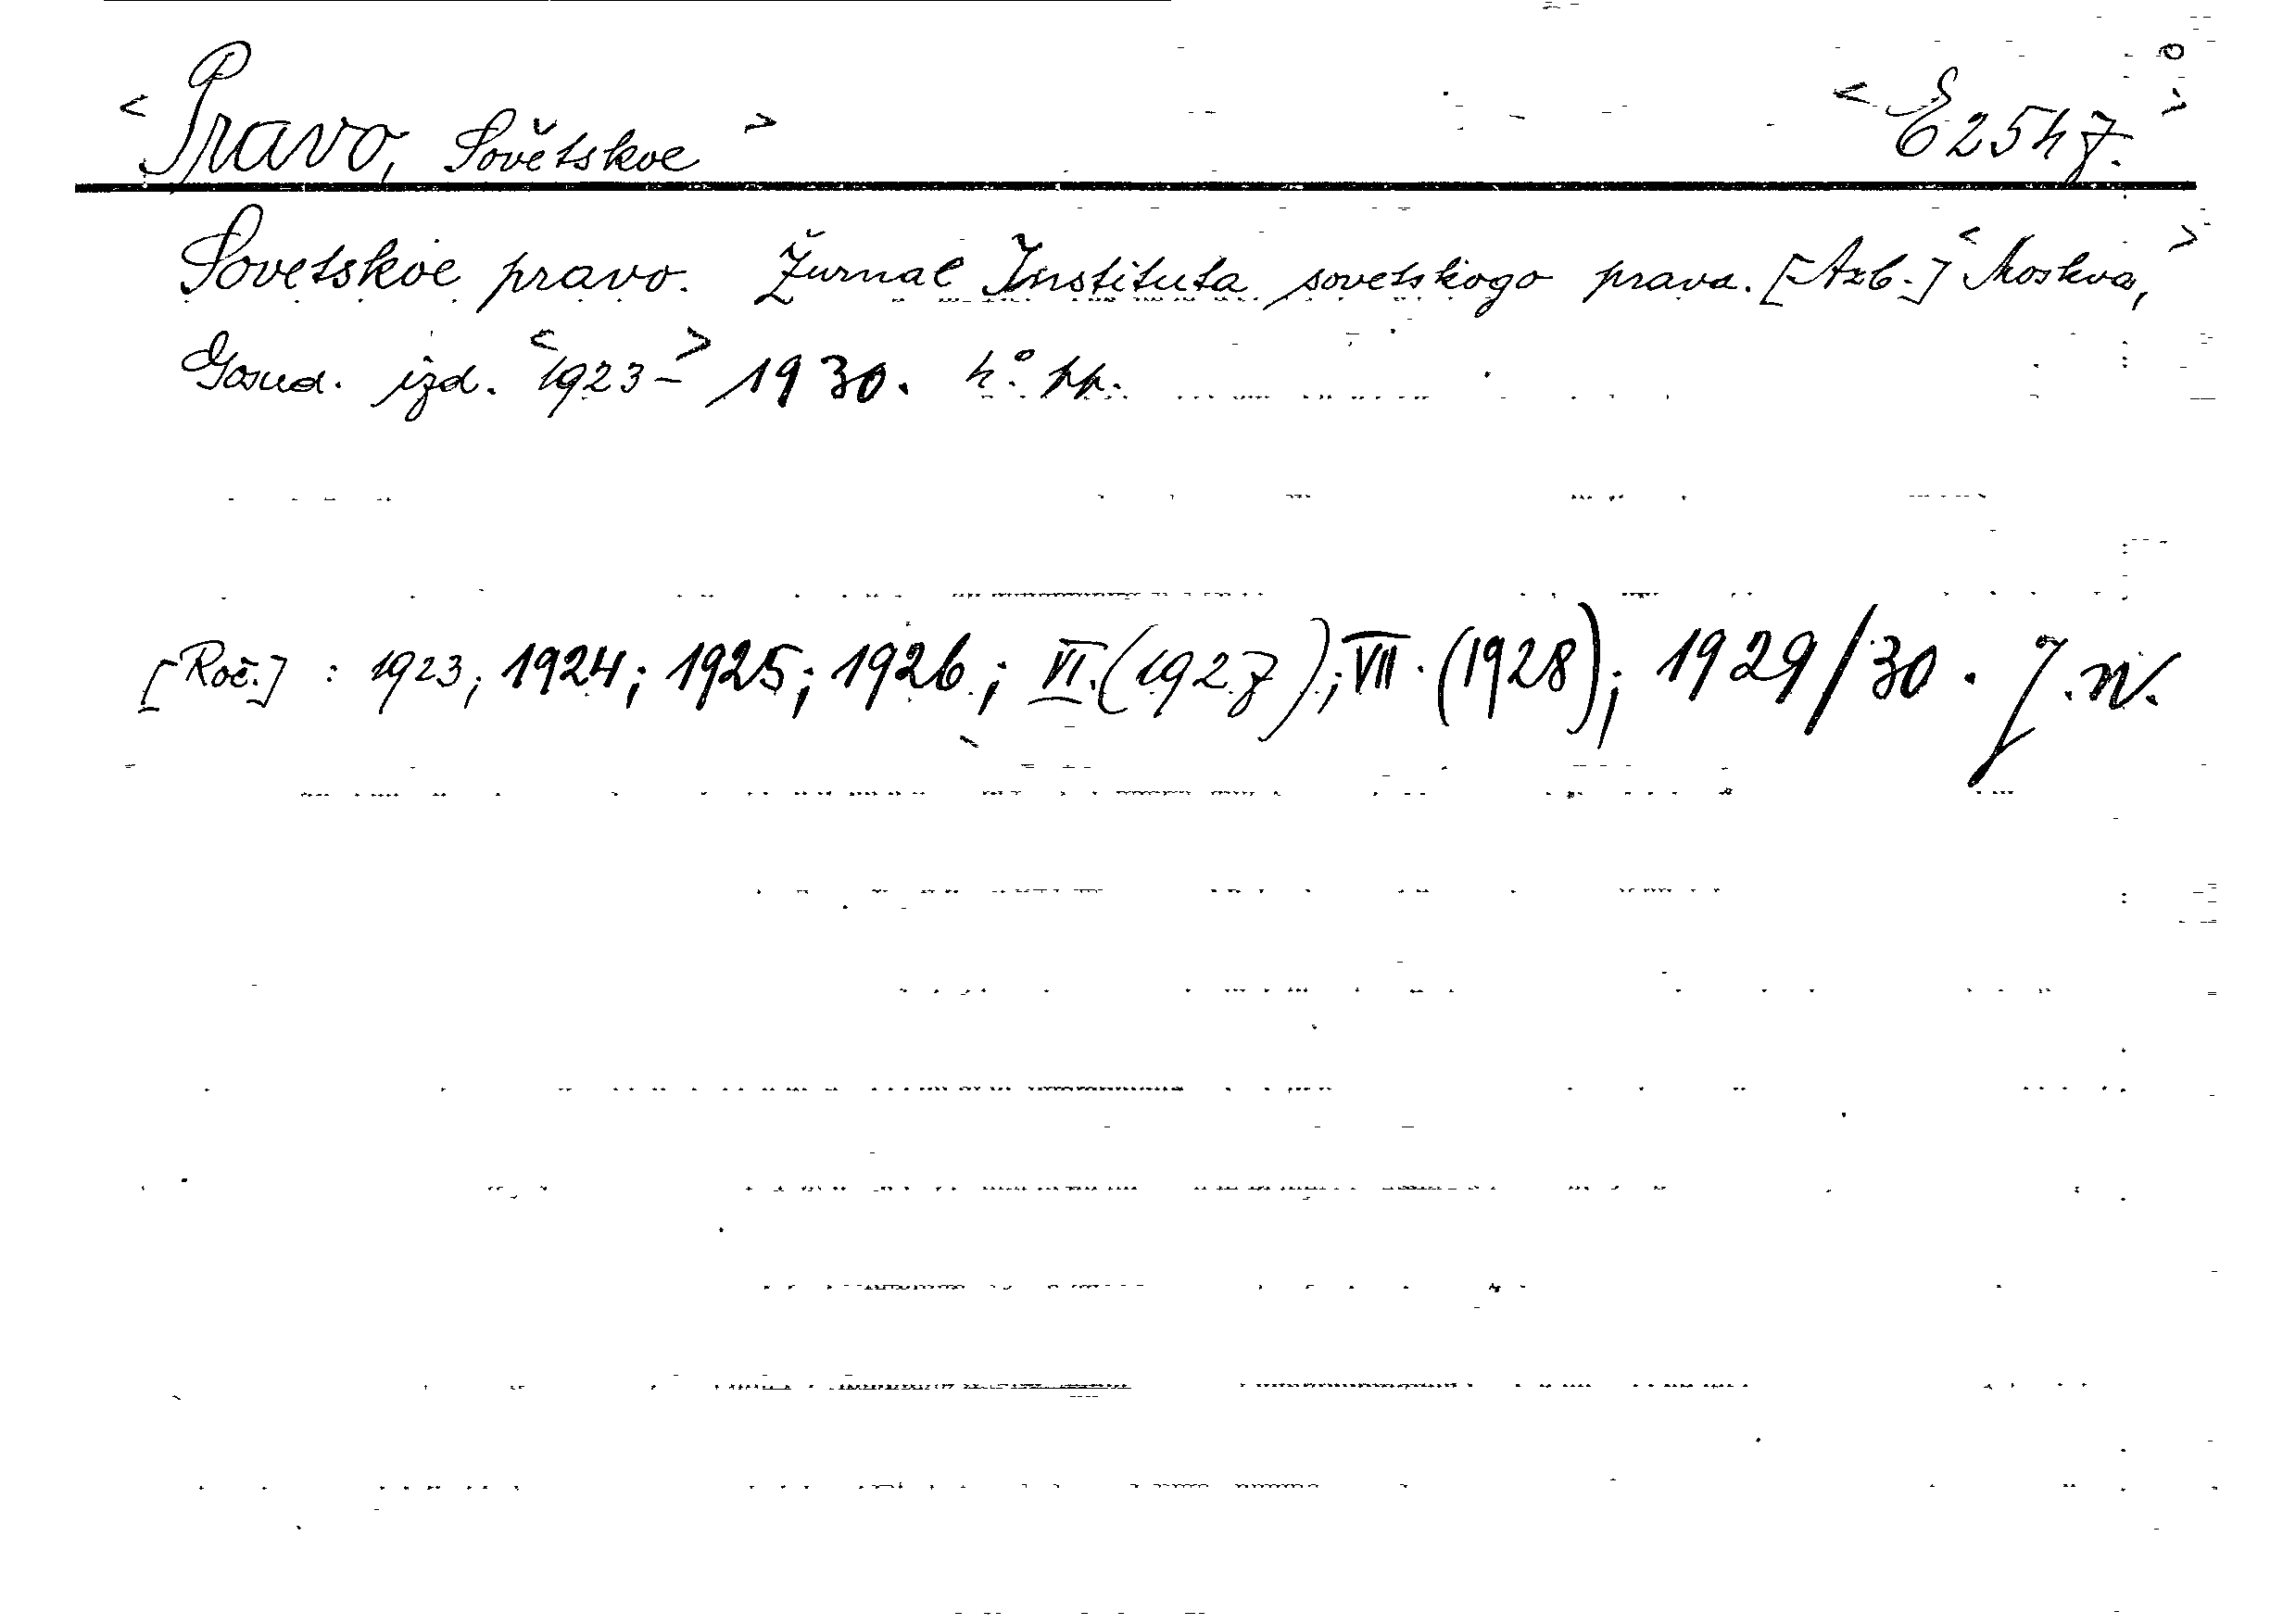 < Pravo, Sovětskoe > < E 2547. >
Sovetskoe pravo. Žurnal Instituta sovetskogo prava. [Azb.] <Moskva,>
Gosud. izd. <1923-> 1930. 4° pp.
[Roč.] : 1923; 1924; 1925; 1926; VI.(1927); VII.(1928); 1929/30. J.N.